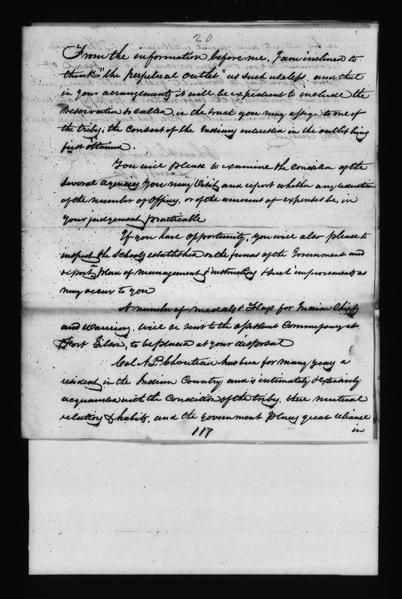 20
From the information before me, I am inclined to
think "the perpetual outlet" as such useless, and that
in your arrangements it will be expedient to include the
reservation so called in the tract you may assign to one of
the tribes, the Consent of the Indians interested in the outlet being
first obtained.
You will please to examine the condition of the
several agencies you may visit, and report whether any reduction
of the number of Officers, or of the amount of expenses be, in
your judgement practicable
If you have opportunity, you will also please to
inspect the schools established on the funds of the Government and
report plan of management & instruction & such improvements as
may occur to you
A number of medals & flags for Indian Chiefs
and Warriors, will be sent to the assistant Commissary at
Fort Gibson, to be placed at your disposal
Col. A. P. Chouteau has been for many years a
resident, in the Indian Country and is intimately & extensively
acquainted with the Condition of the tribes, their mutual
relations & habits, and the Government places great reliance
in
117